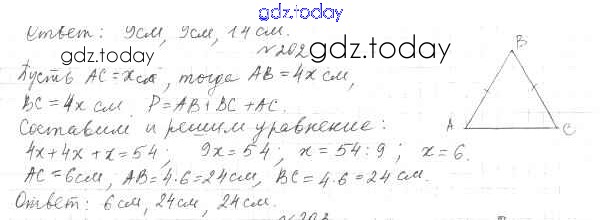 gdz.today
Ответ: 9см, 9см, 14 см.
gdz.today
№202
gdz.today
Пусть AC = x см, тогда AB = 4x см,
BC = 4x см. P = AB + BC + AC.
Составим и решим уравнение:
4x + 4x + x = 54; 9x = 54; x = 54 : 9; x = 6.
AC = 6см, AB = 4·6 = 24см, BC = 4·6 = 24 см.
Ответ: 6см, 24см, 24см.
№203
B
A
C